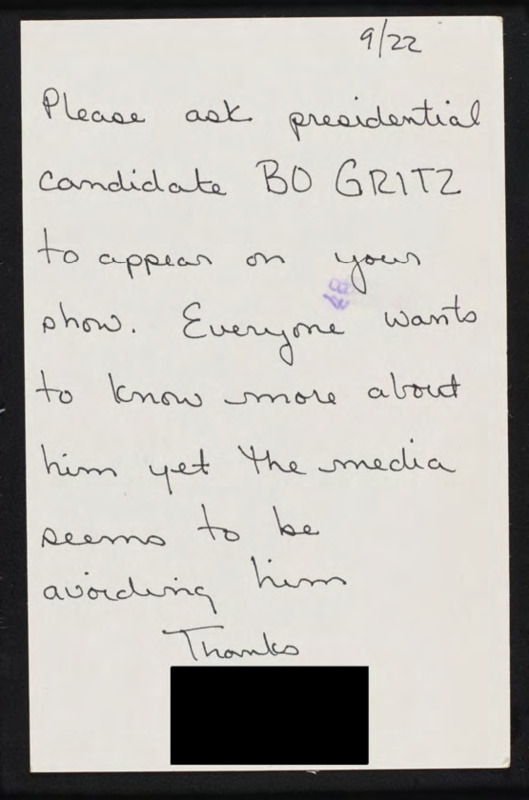 9/22
Please ask presidential
candidate BO GRITZ
to appear on your
show. Everyone wants
to know more about
him yet the media
seems to be
avoiding him
Thanks